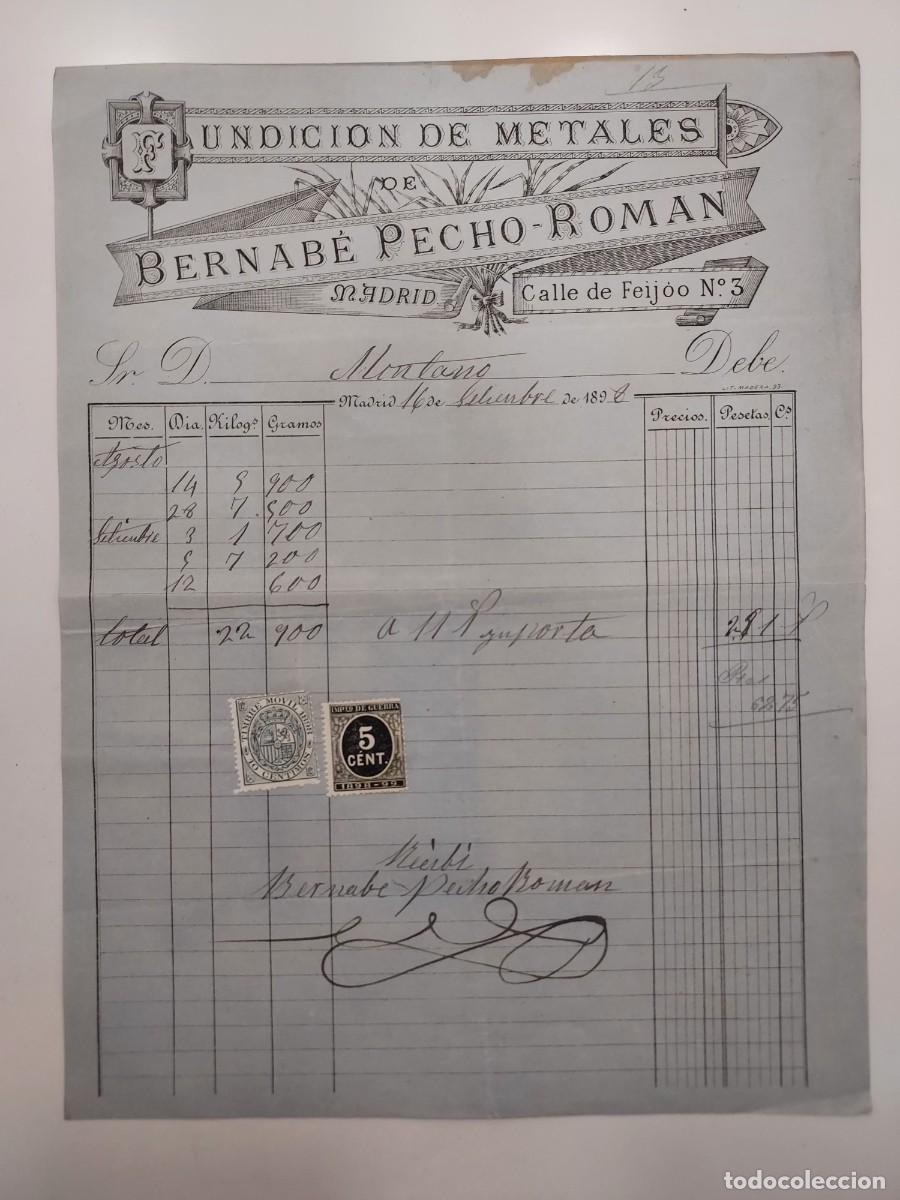 13
FUNDICION DE METALES
DE
BERNABÉ PECHO-ROMAN
MADRID
Calle de Feijóo Nº 3
Sr. D. Montano Debe.
LIT. MADERA, 93.
Madrid 16 de Setiembre de 1898
Mes. Dia. Kilogs. Gramos Precios. Pesetas. Cs.
Agosto
14 5 900
28 7 500
Setiembre 3 1 700
5 7 200
12 600
total 22 900 a 11 importa 251
62,75
TIMBRE MOVIL 1898
10 CENTIMOS
IMPTO. DE GUERRA
5
CÉNT.
1898-99
Recibi
Bernabe Pecho Roman
todocoleccion
todocoleccion.net